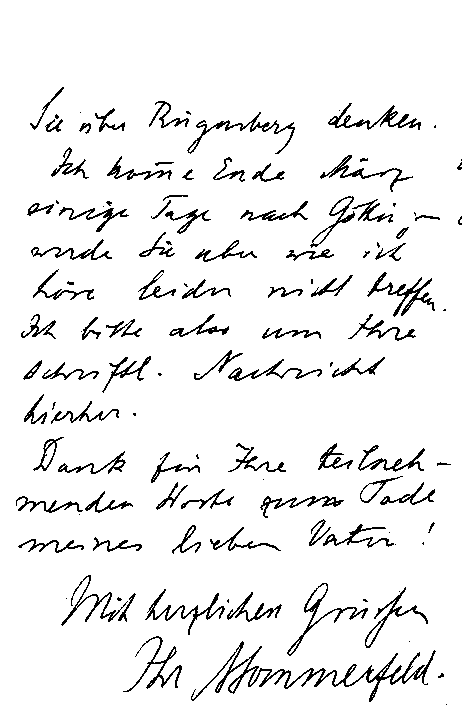 Sie über Rügenberg denken.
Ich kom̅e Ende März
einige Tage nach Götting.
werde Sie aber wie ich
höre leider nicht treffen.
Ich bitte also um Ihre
schriftl. Nachricht
hierher.
Dank für Ihre teilneh-
menden Worte zum Tode
meines lieben Vaters!
Mit herzlichen Grüssen
Ihr ASommerfeld.